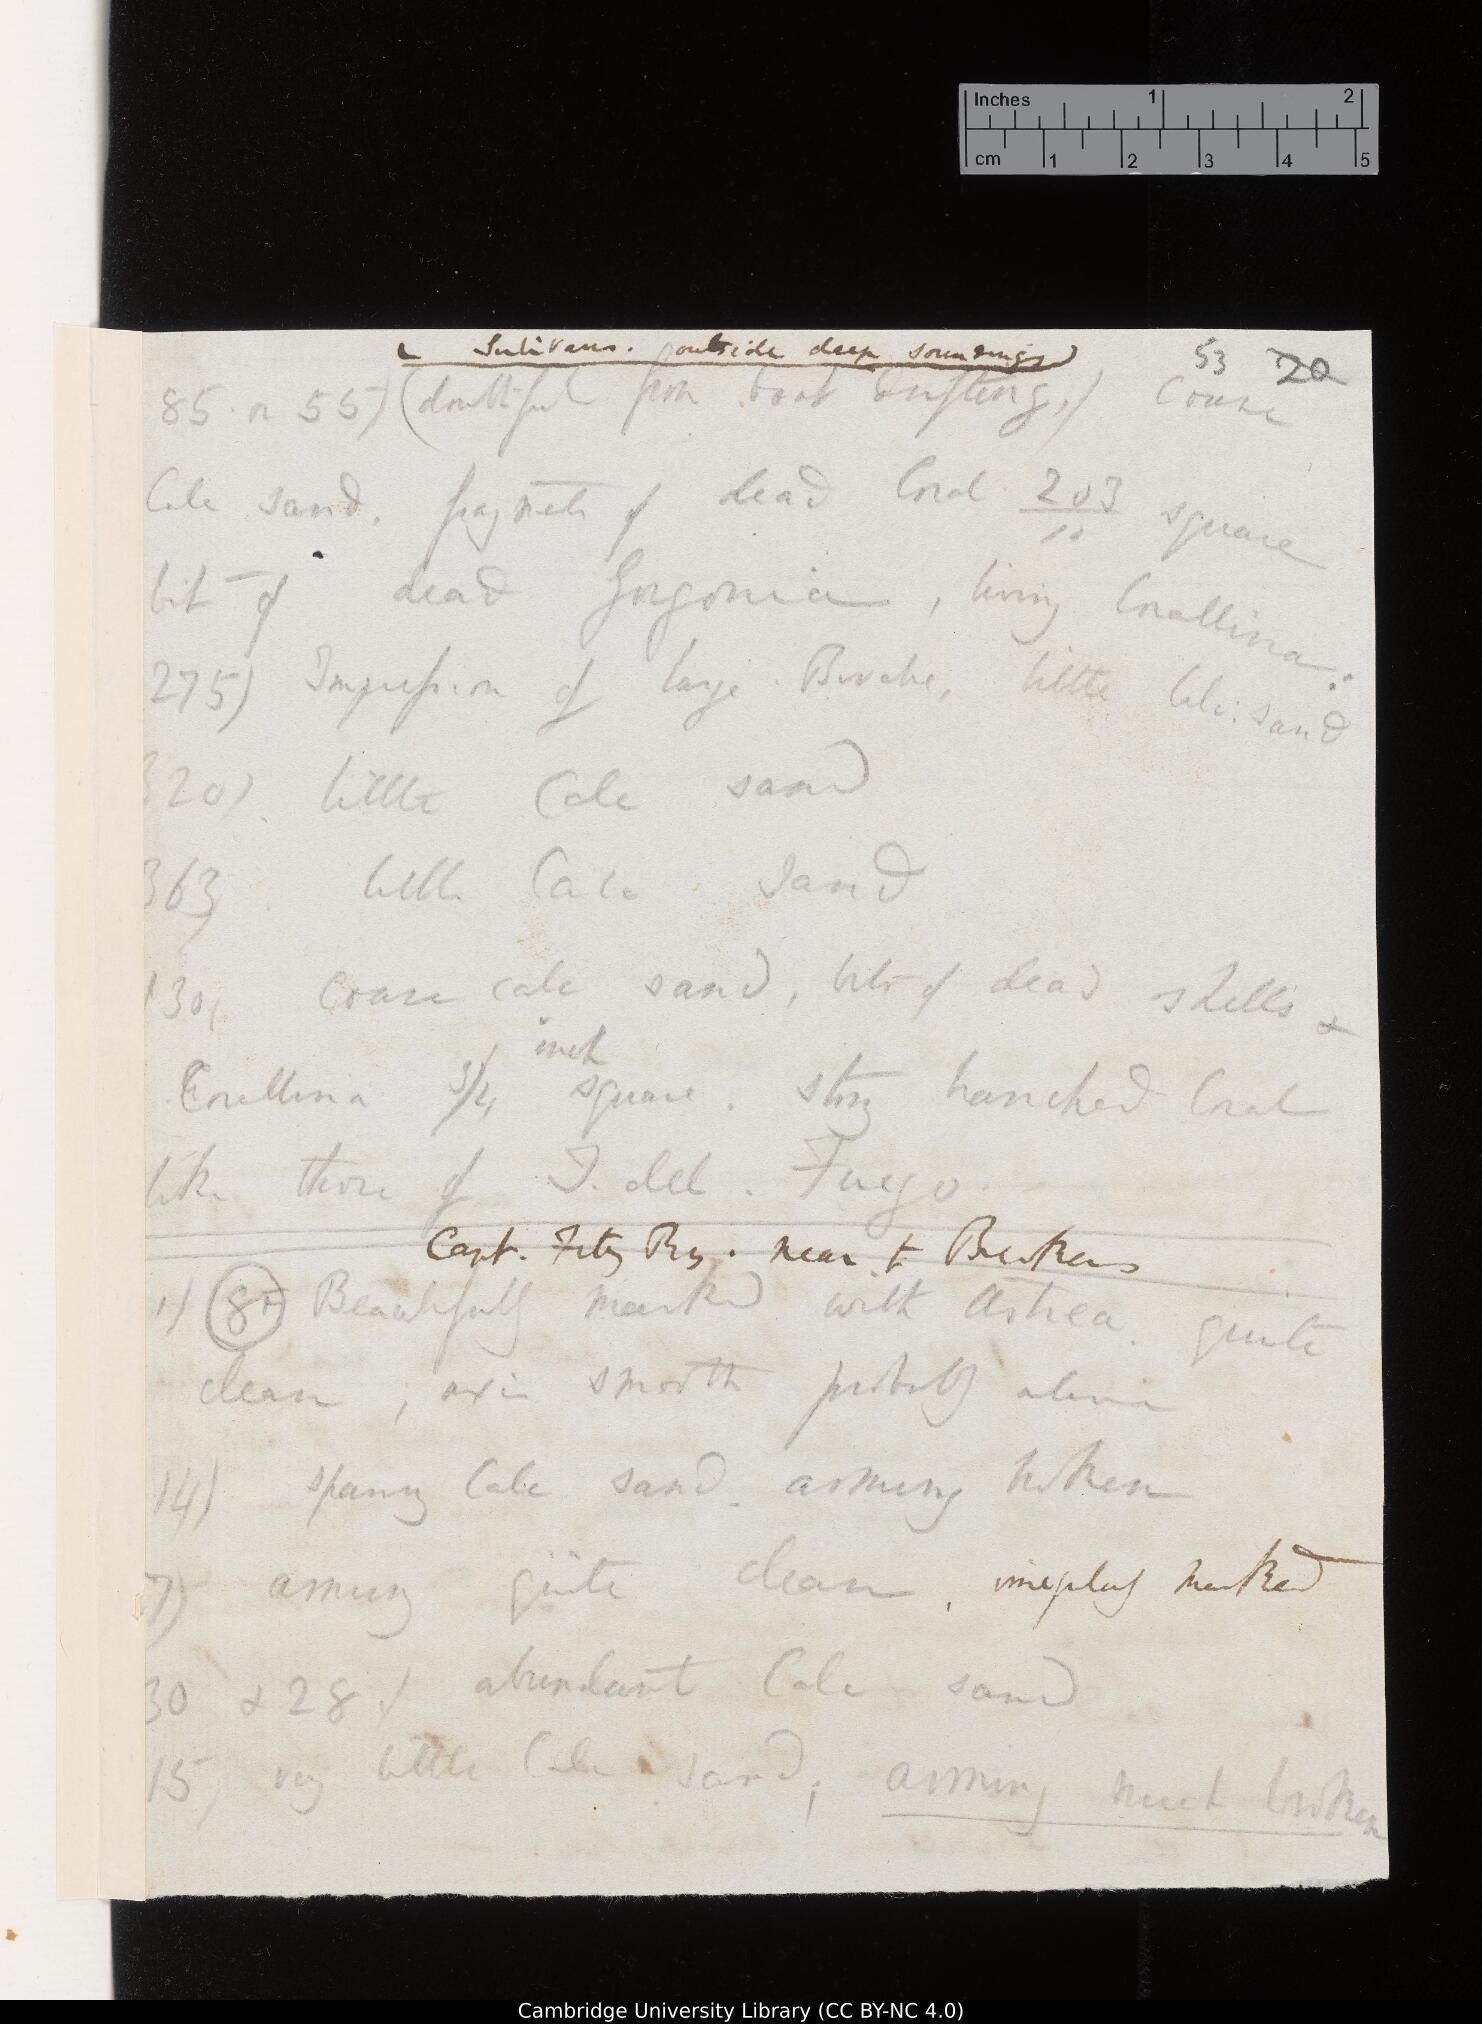 Inches 1 2
cm 1 2 3 4 5
Sulivans. outside deep soundings)
53 20
85 or 55) (doubtful from boat drifting,) Coarse
Calc sand. fragments of dead Coral 2 or 3 square
10
bit of dead Gorgonia, living Corallina:
275) Impression of large. little Calc: sand
320) little Calc sand
363) little Calc sand
130, Coarse calc sand, bits of dead shells &
inch
Corallina 3/4 square. stony branched Coral
like those of T. del. Fuego.
Capt. Fitz Roy. near to Breakers
1) 8 Beautifully marked with Astrea. quite
clean, smooth probably alive
14) Calc sand. arming broken
7) arming quite clean, marked
30 & 28,) abundant Calc sand
15, very little Calc sand; arming much broken
Cambridge University Library (CC BY-NC 4.0)